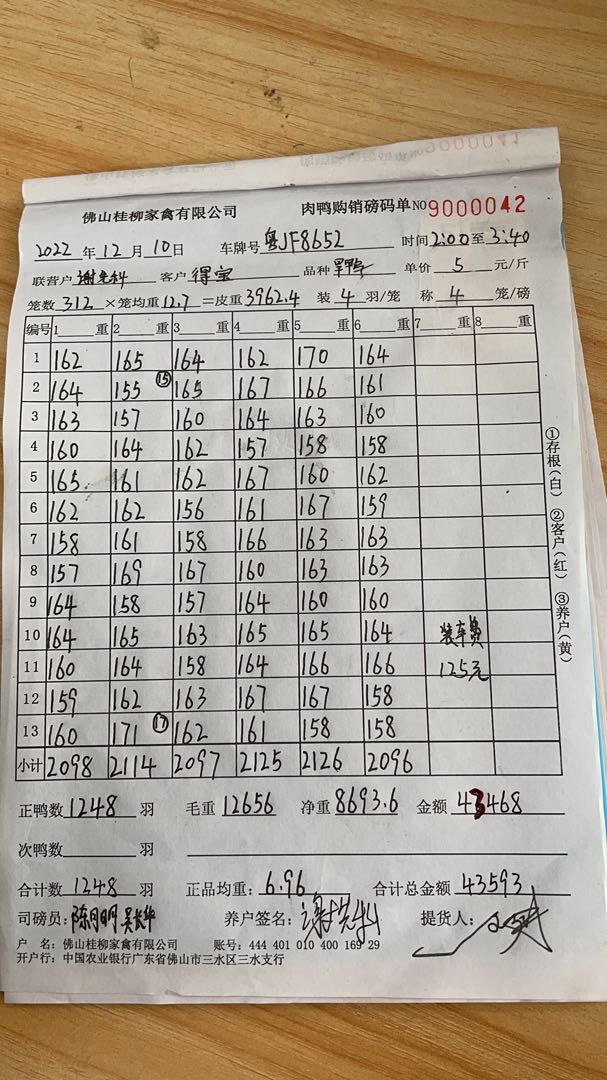 9000041
佛山桂柳家禽有限公司 肉鸭购销磅码单 NO 9000042
2022 年 12 月 10 日 车牌号 粤JF8652 时间 2:00 至 3:40
联营户 客户 得宝 品种 单价 5 元/斤
笼数 312 ×笼均重 12.7 =皮重 3962.4 装 4 羽/笼 称 4 笼/磅
编号 1 重 2 重 3 重 4 重 5 重 6 重 7 重 8 重
1 162 165 164 162 170 164
2 164 155 ⑮ 165 167 166 161
3 163 157 160 164 163 160
4 160 164 162 157 158 158
5 165 161 162 167 160 162
6 162 162 156 161 167 159
7 158 161 158 166 163 163
8 157 169 167 160 163 163
9 164 158 157 164 160 160
10 164 165 163 165 165 164 装车费
11 160 164 158 164 166 166 125元
12 159 162 163 167 167 158
13 160 171 ⑰ 162 161 158 158
小计 2098 2114 2097 2125 2126 2096
①存根(白) ②客户(红) ③养户(黄)
正鸭数 1248 羽 毛重 12656 净重 8693.6 金额 43468
次鸭数 羽
合计数 1248 羽 正品均重: 6.96 合计总金额 43593
司磅员: 养户签名: 提货人:
户 名: 佛山桂柳家禽有限公司 账号: 444 401 010 400 169 29
开户行: 中国农业银行广东省佛山市三水区三水支行